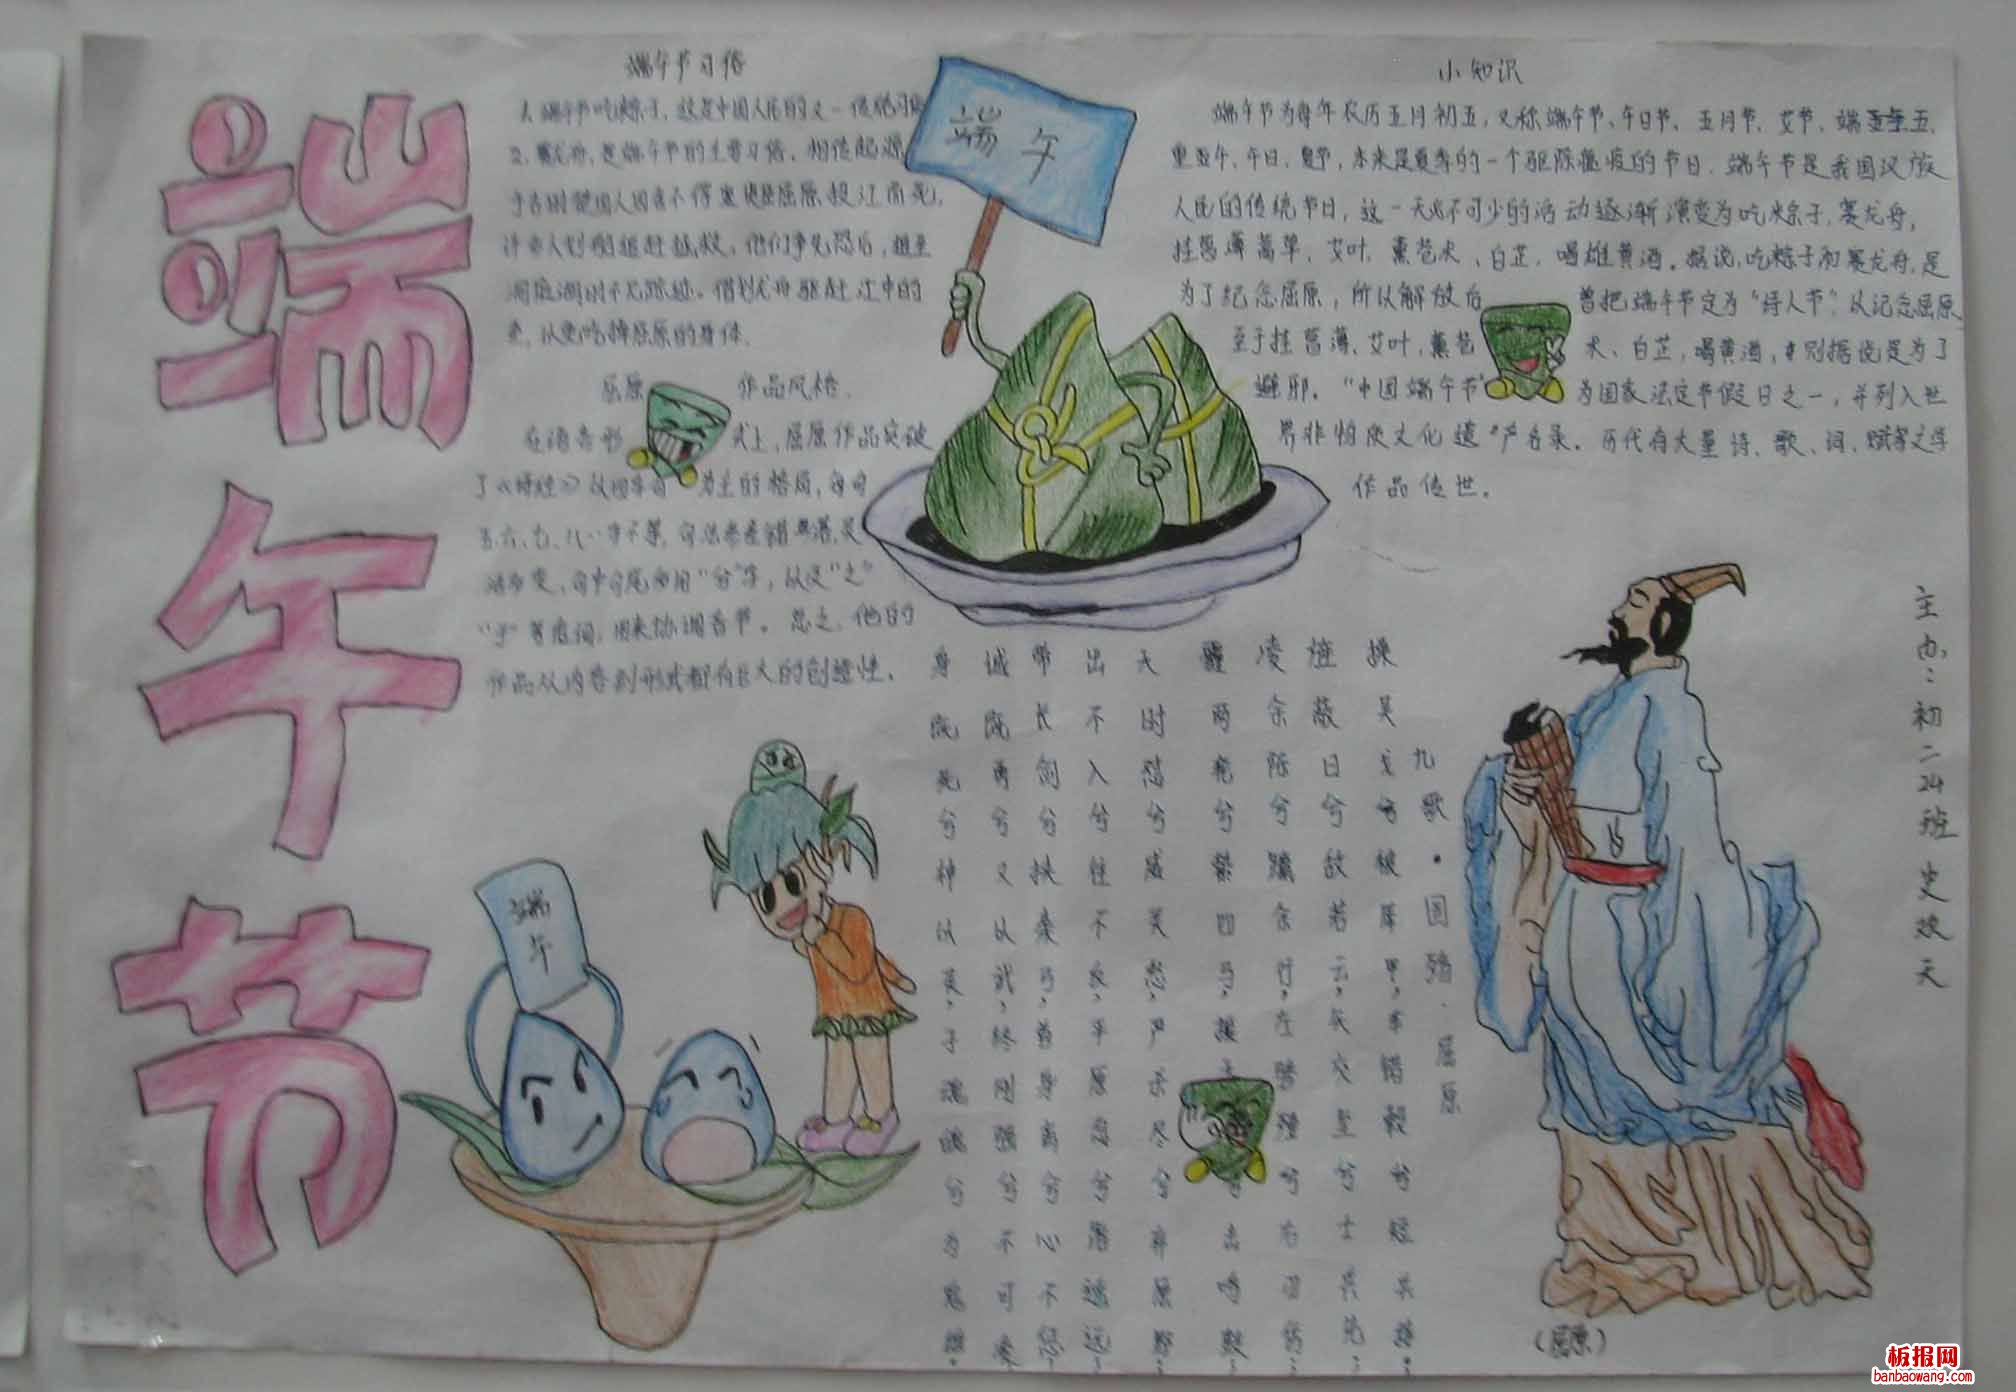 端午节
端午节习俗
1、端午节吃粽子，这是中国人民的又一传统习俗
2、赛龙舟，是端午节的主要习俗。相传起源
于古时楚国人因舍不得贤臣屈原投江而死，
许多人划船追赶拯救。他们争先恐后，追至
洞庭湖时不见踪迹。借划龙舟驱赶江中的
鱼，以免吃掉屈原的身体。
屈原作品风格.
在语言形式上，屈原作品突破
了《诗经》以四字句为主的格局，每句
五、六、七、八、九字不等，句法参差错落，灵
活多变，句中句尾多用“兮”字，以及“之”
“于”等虚词，用来协调音节。总之，他的
作品从内容到形式都有巨大的创造性。
端午
小知识
端午节为每年农历五月初五，又称端午节、午日节、五月节、艾节、端五、
重五午、午日、夏节，本来是夏季的一个驱除瘟疫的节日。端午节是我国汉族
人民的传统节日，这一天必不可少的活动逐渐演变为吃粽子，赛龙舟，
挂菖蒲蒿草，艾叶，薰苍术、白芷，喝雄黄酒。据说，吃粽子和赛龙舟，是
为了纪念屈原，所以解放后曾把端午节定为“诗人节”，以纪念屈原
至于挂菖蒲、艾叶，薰苍术、白芷，喝黄酒，则据说是为了
避邪。“中国端午节”为国家法定节假日之一，并列入世
界非物质文化遗产名录。历代有大量诗、歌、词、赋等文学
作品传世。
九歌·国殇·屈原
操吴戈兮被犀甲，车错毂兮短兵接。
旌蔽日兮敌若云，矢交坠兮士兵先。
凌余阵兮躐余行，左骖殪兮右刃伤。
霾两轮兮絷四马，援兮击鸣鼓。
天时怼兮威灵怒，严杀尽兮弃原野。
出不入兮往不反，平原忽兮路遥远。
带长剑兮挟秦弓，首身离兮心不惩。
诚既勇兮又以武，终刚强兮不可凌。
身既死兮神以灵，子魂魄兮为鬼雄。
端午
主办：初二24班 史姣天
（屈原）
板报网
banbaowang.com